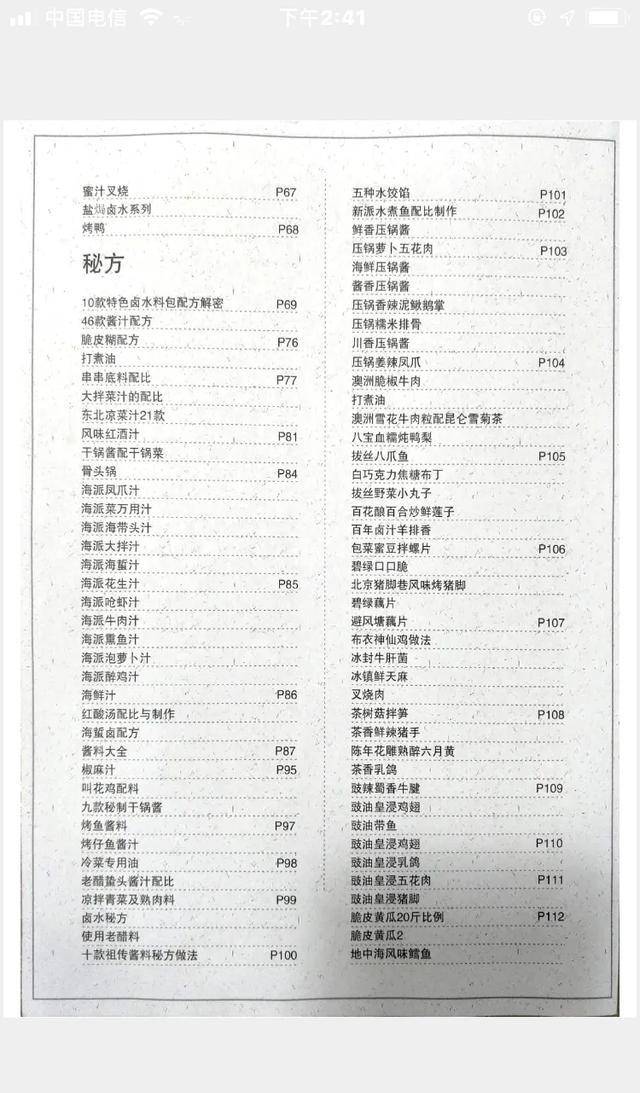 中国电信
下午2:41
蜜汁叉烧 P67
盐焗卤水系列
烤鸭 P68
秘方
10款特色卤水料包配方解密 P69
46款酱汁配方
脆皮糊配方 P76
打煮油
串串底料配比 P77
大拌菜汁的配比
东北凉菜汁21款
风味红酒汁 P81
干锅酱配干锅菜
骨头锅 P84
海派凤爪汁
海派菜万用汁
海派海带头汁
海派大拌汁
海派海蜇汁
海派花生汁 P85
海派呛虾汁
海派牛肉汁
海派熏鱼汁
海派泡萝卜汁
海派醉鸡汁
海鲜汁 P86
红酸汤配比与制作
海蜇卤配方
酱料大全 P87
椒麻汁 P95
叫花鸡配料
九款秘制干锅酱
烤鱼酱料 P97
烤仔鱼酱汁
冷菜专用油 P98
老醋蛰头酱汁配比
凉拌青菜及熟肉料 P99
卤水秘方
使用老醋料
十款祖传酱料秘方做法 P100
五种水饺馅 P101
新派水煮鱼配比制作 P102
鲜香压锅酱
压锅萝卜五花肉 P103
海鲜压锅酱
酱香压锅酱
压锅香辣泥鳅鹅掌
压锅糯米排骨
川香压锅酱
压锅姜辣凤爪 P104
澳洲脆椒牛肉
打煮油
澳洲雪花牛肉粒配昆仑雪菊茶
八宝血糯炖鸭梨
拔丝八爪鱼 P105
白巧克力焦糖布丁
拔丝野菜小丸子
百花酿百合炒鲜莲子
百年卤汁羊排香
包菜蜜豆拌螺片 P106
碧绿口口脆
北京猪脚巷风味烤猪脚
碧绿藕片
避风塘藕片 P107
布衣神仙鸡做法
冰封牛肝菌
冰镇鲜天麻
叉烧肉
茶树菇拌笋 P108
茶香鲜辣猪手
陈年花雕熟醉六月黄
茶香乳鸽
豉辣蜀香牛腱 P109
豉油皇浸鸡翅
豉油带鱼
豉油皇浸鸡翅 P110
豉油皇浸乳鸽
豉油皇浸五花肉 P111
豉油皇浸猪脚
脆皮黄瓜20斤比例 P112
脆皮黄瓜2
地中海风味鳕鱼